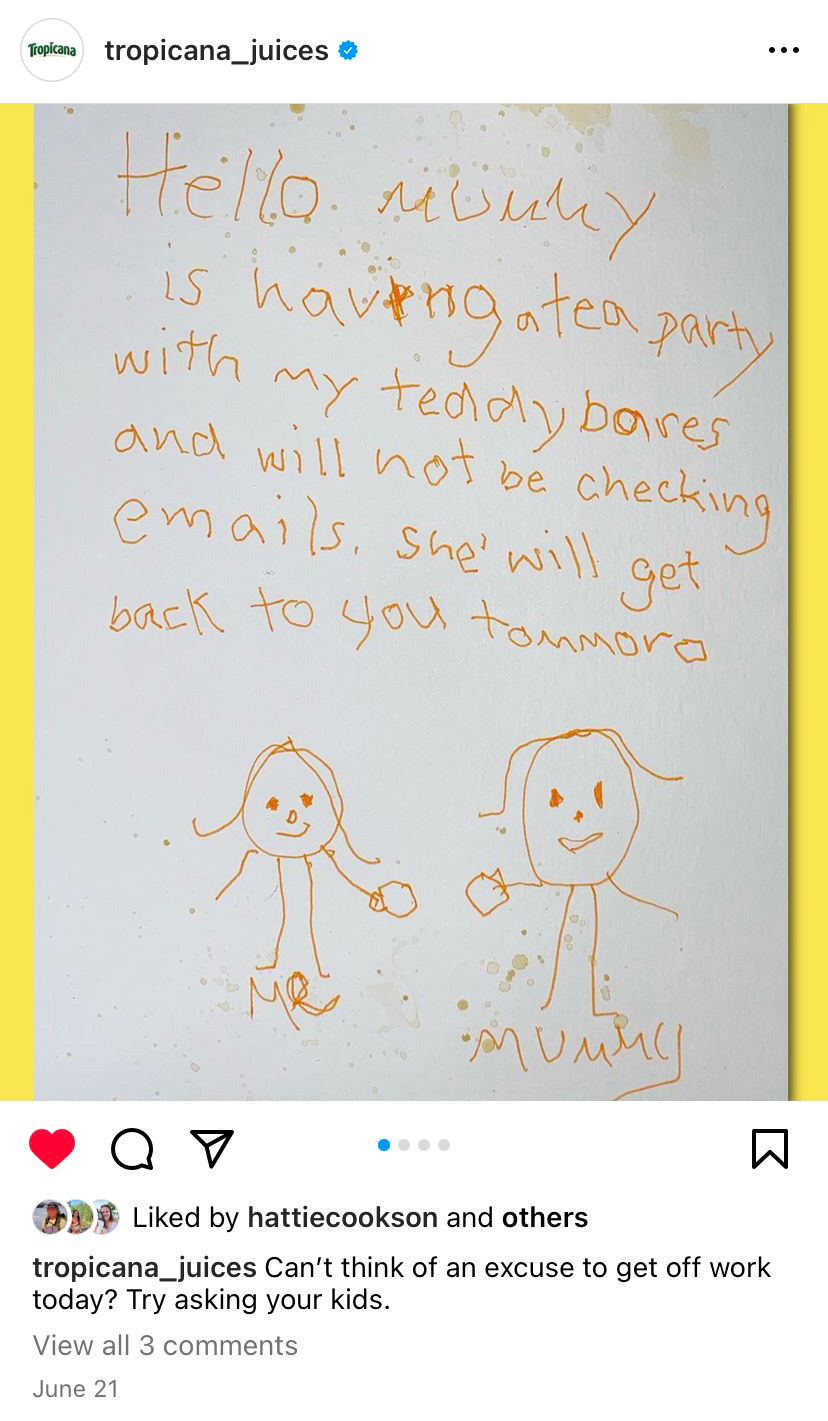 Tropicana
tropicana_juices
Hello. Mummy
is having a tea party
with my teddy bares
and will not be checking
emails. she will get
back to you tommoro
Me
Mummy
Liked by hattiecookson and others
tropicana_juices Can't think of an excuse to get off work
today? Try asking your kids.
View all 3 comments
June 21